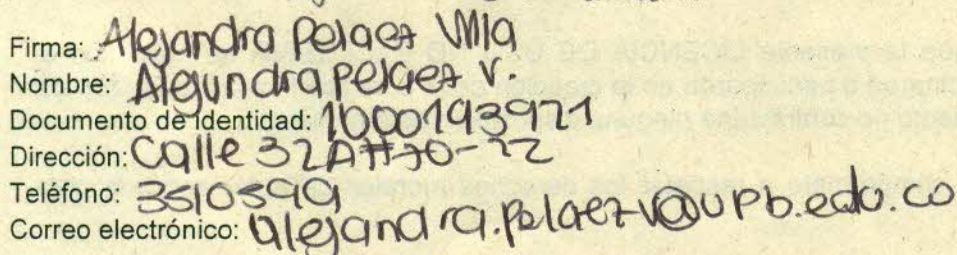 Firma: Alejandra Pelaez Villa
Nombre: Alejandra Pelaez V.
Documento de identidad: 1000193971
Dirección: Calle 32A #70-22
Teléfono: 3510599
Correo electrónico: alejandra.pelaezv@upb.edu.co